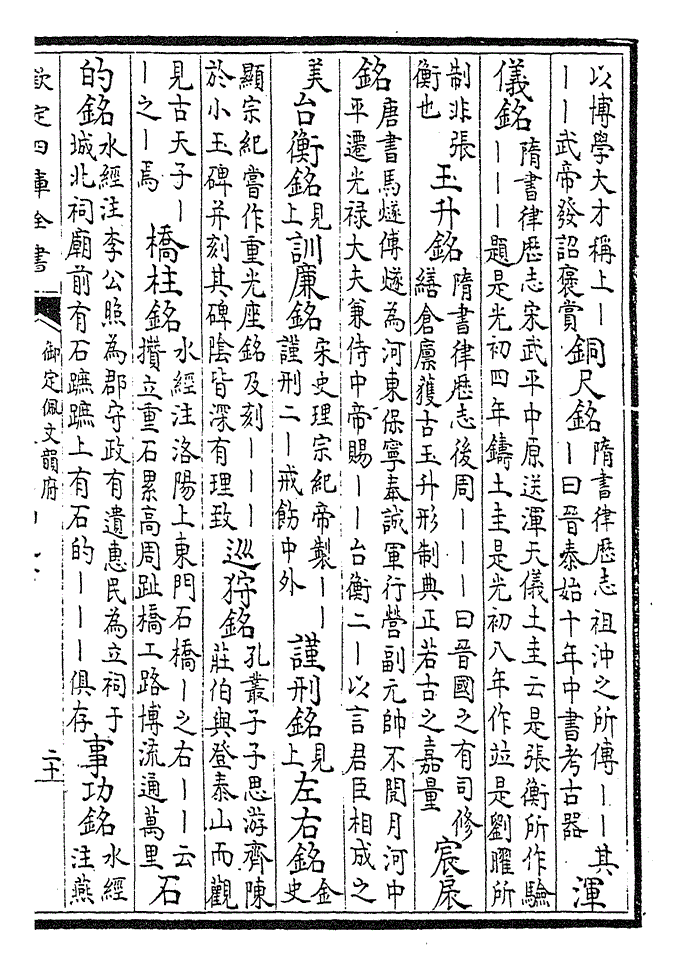 以博學大才稱上一一一武帝發詔褒賞銅尺銘隋書律歷志祖沖之所傳一一其一曰晉泰始十年中書考古器渾
儀銘隋書律歷志宋武平中原送渾天儀土圭云是張衡所作驗一一一題是光初四年鑄土圭是光初八年作竝是劉曜所
制非張衡也玉升銘隋書律歷志後周一一一曰晉國之有司修繕倉廩獲古玉升形制典正若古之嘉量宸扆
銘唐書馬燧傳燧為河東保寧奉誠軍行營副元帥不閱月河中平遷光禄大夫兼侍中帝賜一一台衡二一以言君臣相成之
美台衡銘見上訓廉銘宋史理宗紀帝製一一謹刑二一戒飭中外謹刑銘見上左右銘金史
顯宗紀嘗作重光座銘及刻一一一於小玉碑并刻其碑陰皆深有理致巡狩銘孔叢子子思游齊陳莊伯與登泰山而觀
見古天子一一之一焉橋柱銘水經注洛陽上東門石橋一之右一一云攢立重石累高周趾橋工路博流通萬里石
的銘水經注李公照為郡守政有遺惠民為立祠于城北祠廟前有石蹠蹠上有石的一一一俱存事功銘水經注燕
欽定四庫全書
御定佩文韻府
二十